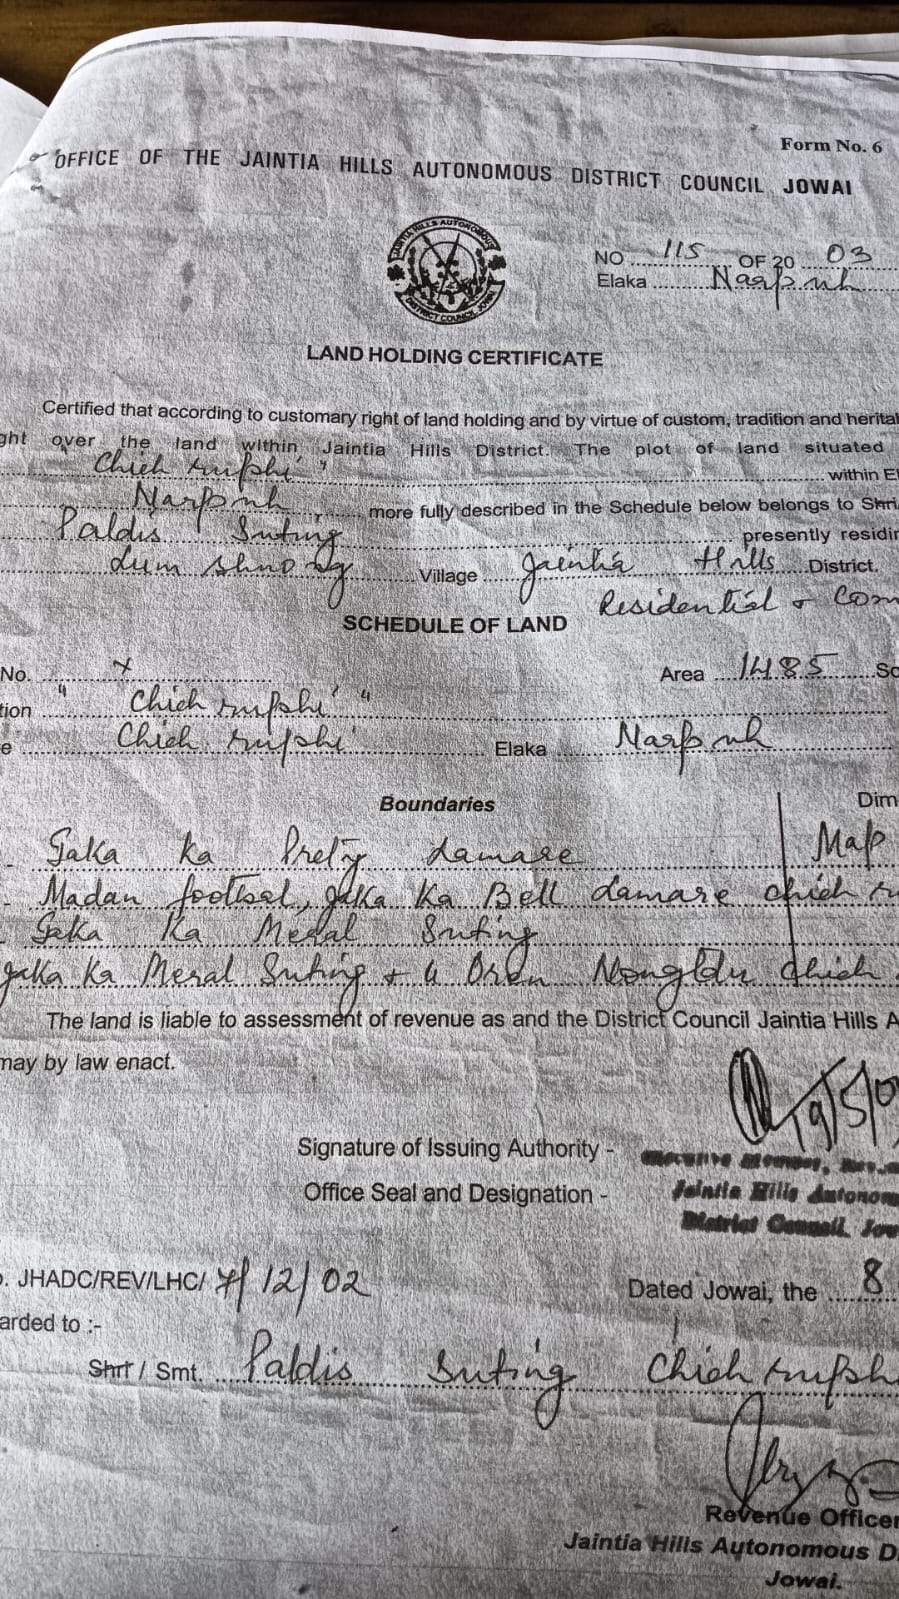 Form No. 6
OFFICE OF THE JAINTIA HILLS AUTONOMOUS DISTRICT COUNCIL JOWAI
JAINTIA HILLS AUTONOMOUS
DISTRICT COUNCIL JOWAI
NO 115 OF 20 03
Elaka Narpuh
LAND HOLDING CERTIFICATE
Certified that according to customary right of land holding and by virtue of custom, tradition and herita
ght over the land within Jaintia Hills District. The plot of land situated
"Chich ruphi" within E
Narpuh more fully described in the Schedule below belongs to Shri
Paldis Suting presently residi
Lum Shnong Village Jaintia Hills District.
Residential + Com
SCHEDULE OF LAND
No. Area 1485
tion "Chich ruphi"
e Chich ruphi Elaka Narpuh
Boundaries Dim
Jaka ka Prety damare Map
Madan footbal, Jaka Ka Bell damare chich
Jaka Ka Meral Suting
Jaka Ka Meral Suting + u Oren Nongtdu Chich
The land is liable to assessment of revenue as and the District Council Jaintia Hills A
may by law enact.
19/5/0
Signature of Issuing Authority -
Office Seal and Designation -
Jaintia Hills Autonom
District Council, Jow
. JHADC/REV/LHC/ 7/12/02 Dated Jowai, the 8
arded to :-
Shri / Smt. Paldis Suting Chich ruph
Revenue Officer
Jaintia Hills Autonomous D
Jowai.